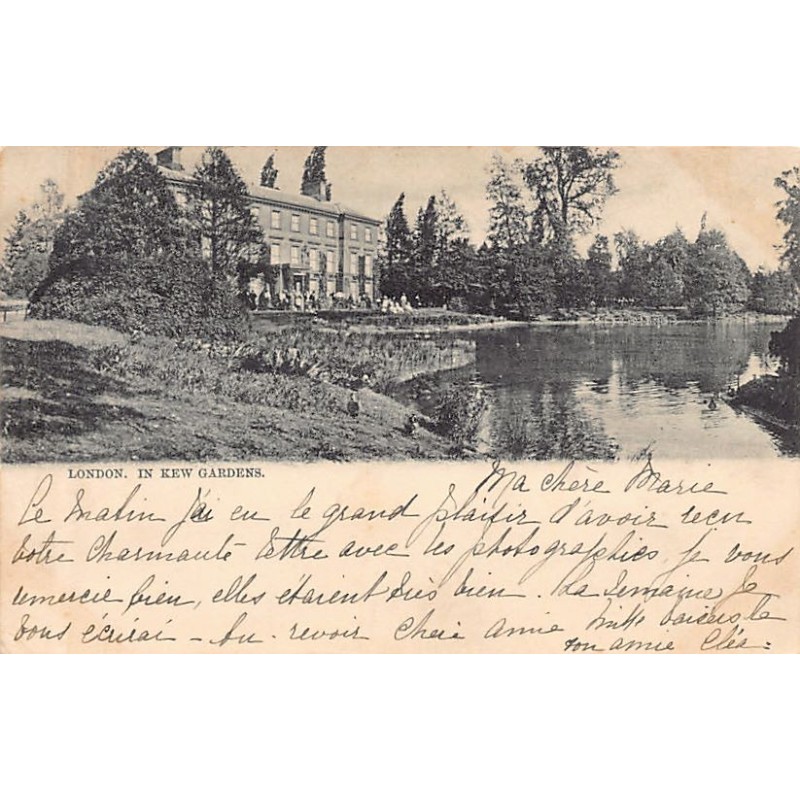 LONDON. IN KEW GARDENS.
Ma chère Marie
Ce Matin j'ai eu le grand plaisir d'avoir recu
votre Charmante lettre avec les photographies, je vous
remercie bien, elles étaient très bien. La Semaine je
vous écrirai - Au. revoir cherie Amie Mille baisers de
ton amie Cléa=